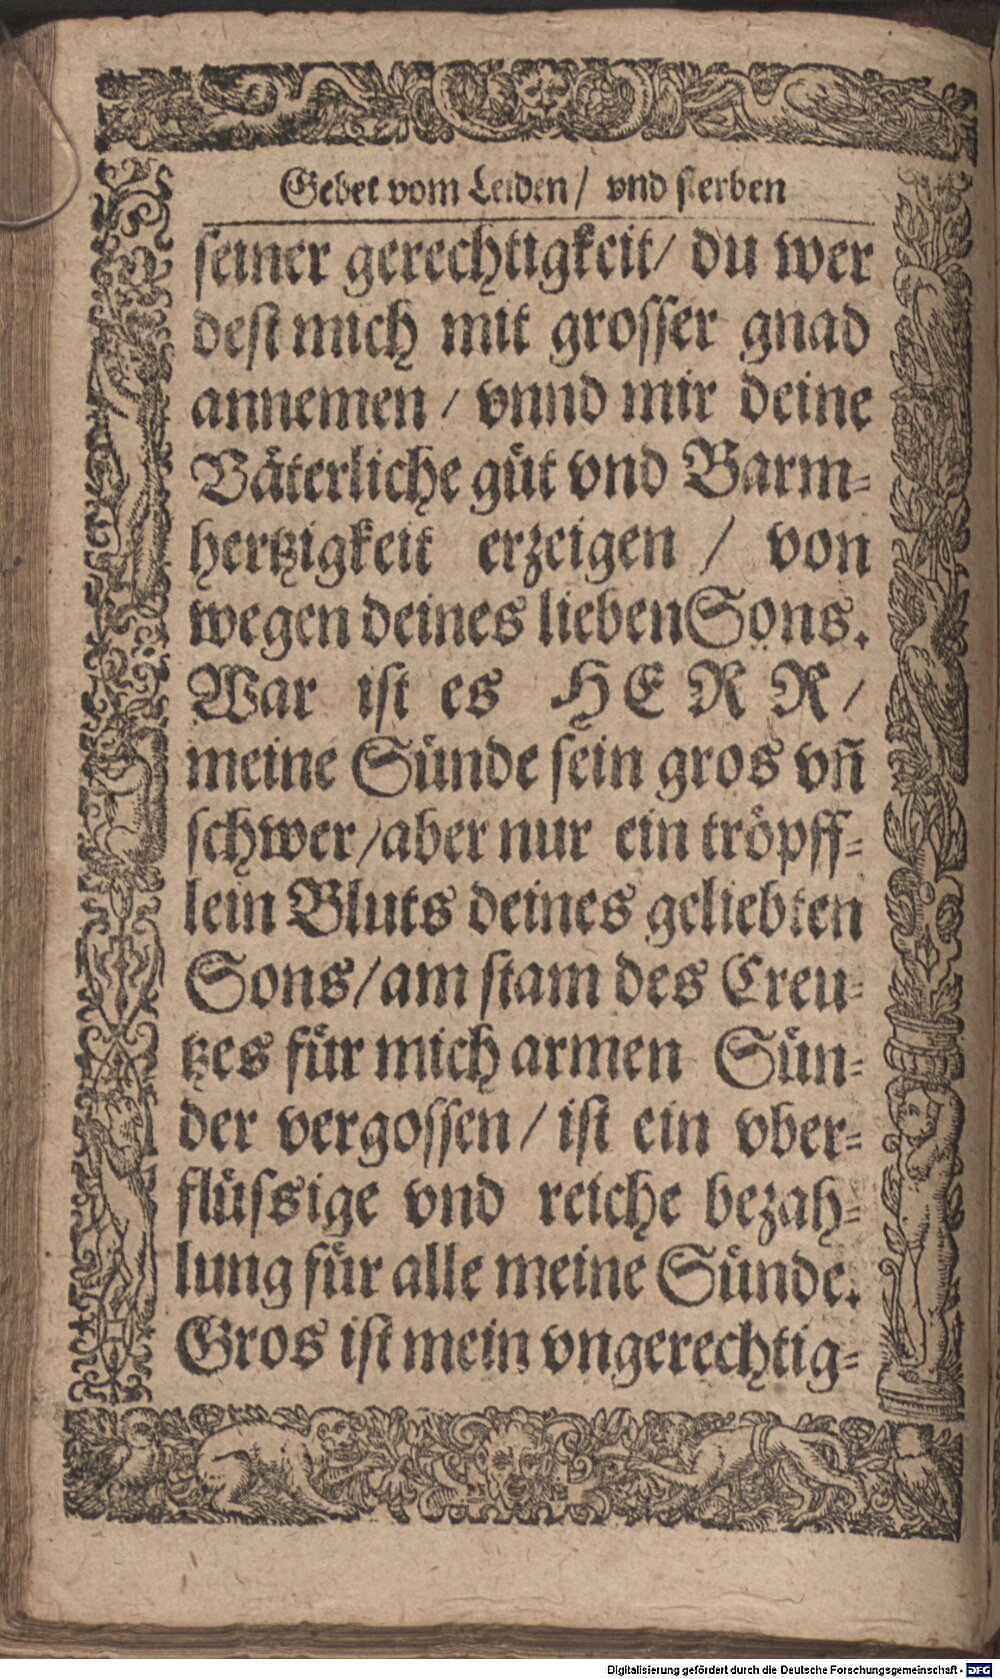 Gebet vom Leiden/ vnd sterben
seiner gerechtigkeit/ du wer
dest mich mit grosser gnad
annemen / vnnd mir deine
Väterliche güt vnd Barm-
hertzigkeit erzeigen / von
wegen deines lieben Sons.
War ist es HERR/
meine Sünde sein gros vñ
schwer/aber nur ein tröpff-
lein Bluts deines geliebten
Sons/am stam des Creu-
tzes für mich armen Sün-
der vergossen/ ist ein vber-
flüssige vnd reiche bezah-
lung für alle meine Sünde.
Gros ist mein vngerechtig-
Digitalisierung gefördert durch die Deutsche Forschungsgemeinschaft - DFG